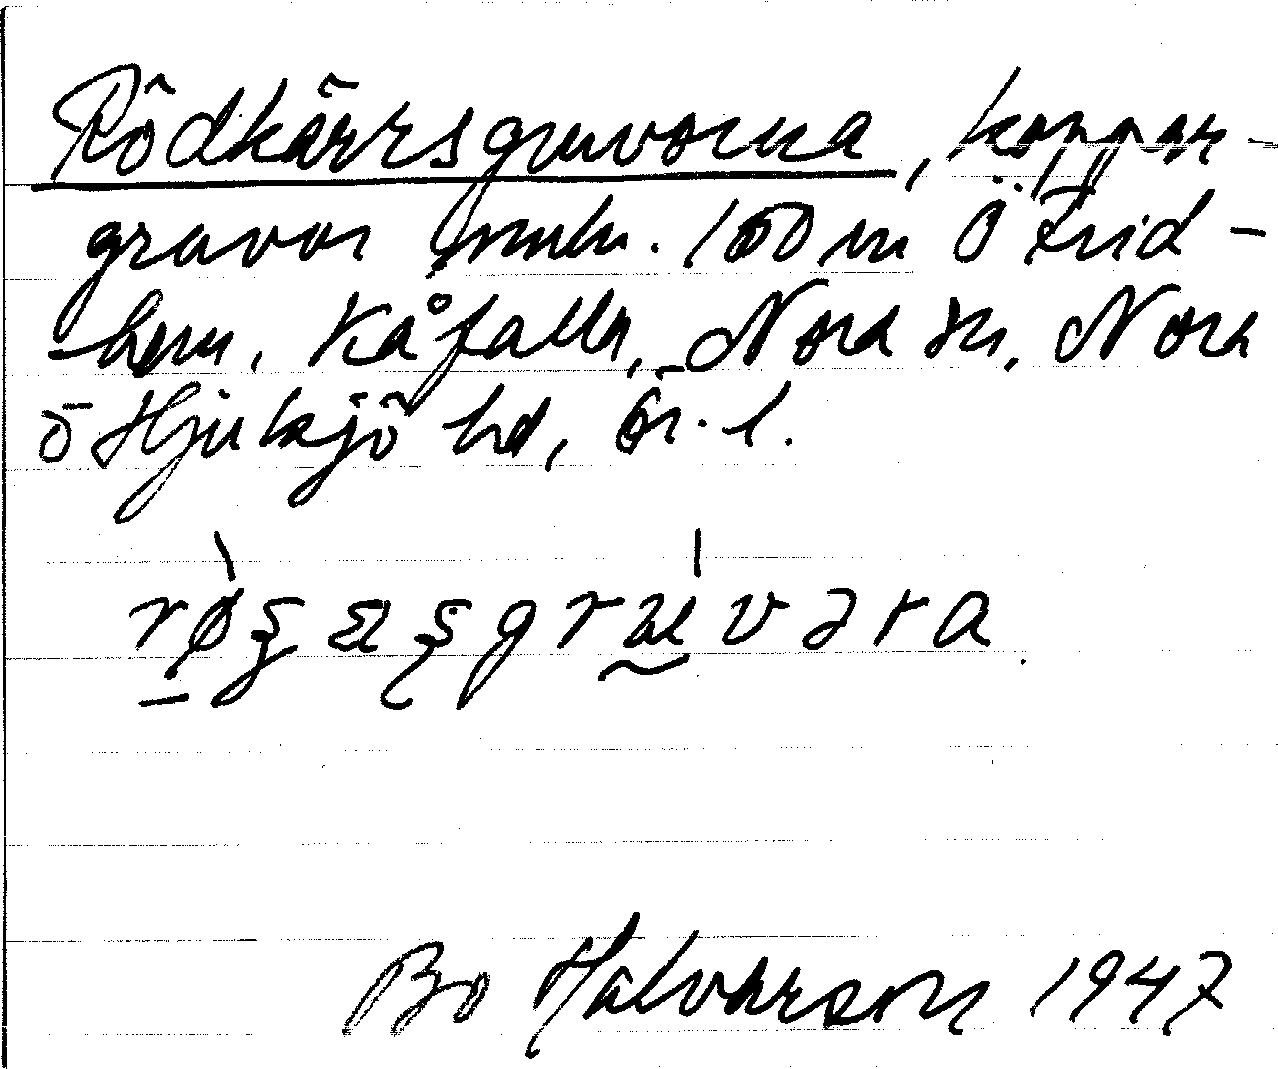 Rödkärrsgruvorna, koppar-
gruvor omkr. 150 m Ö Frid-
hem, Kåfalla, Nora sn, Nora
o Hjulsjö hd, Ör. l.
røʒæʂgrʉvəra
Bo Halvarson 1947